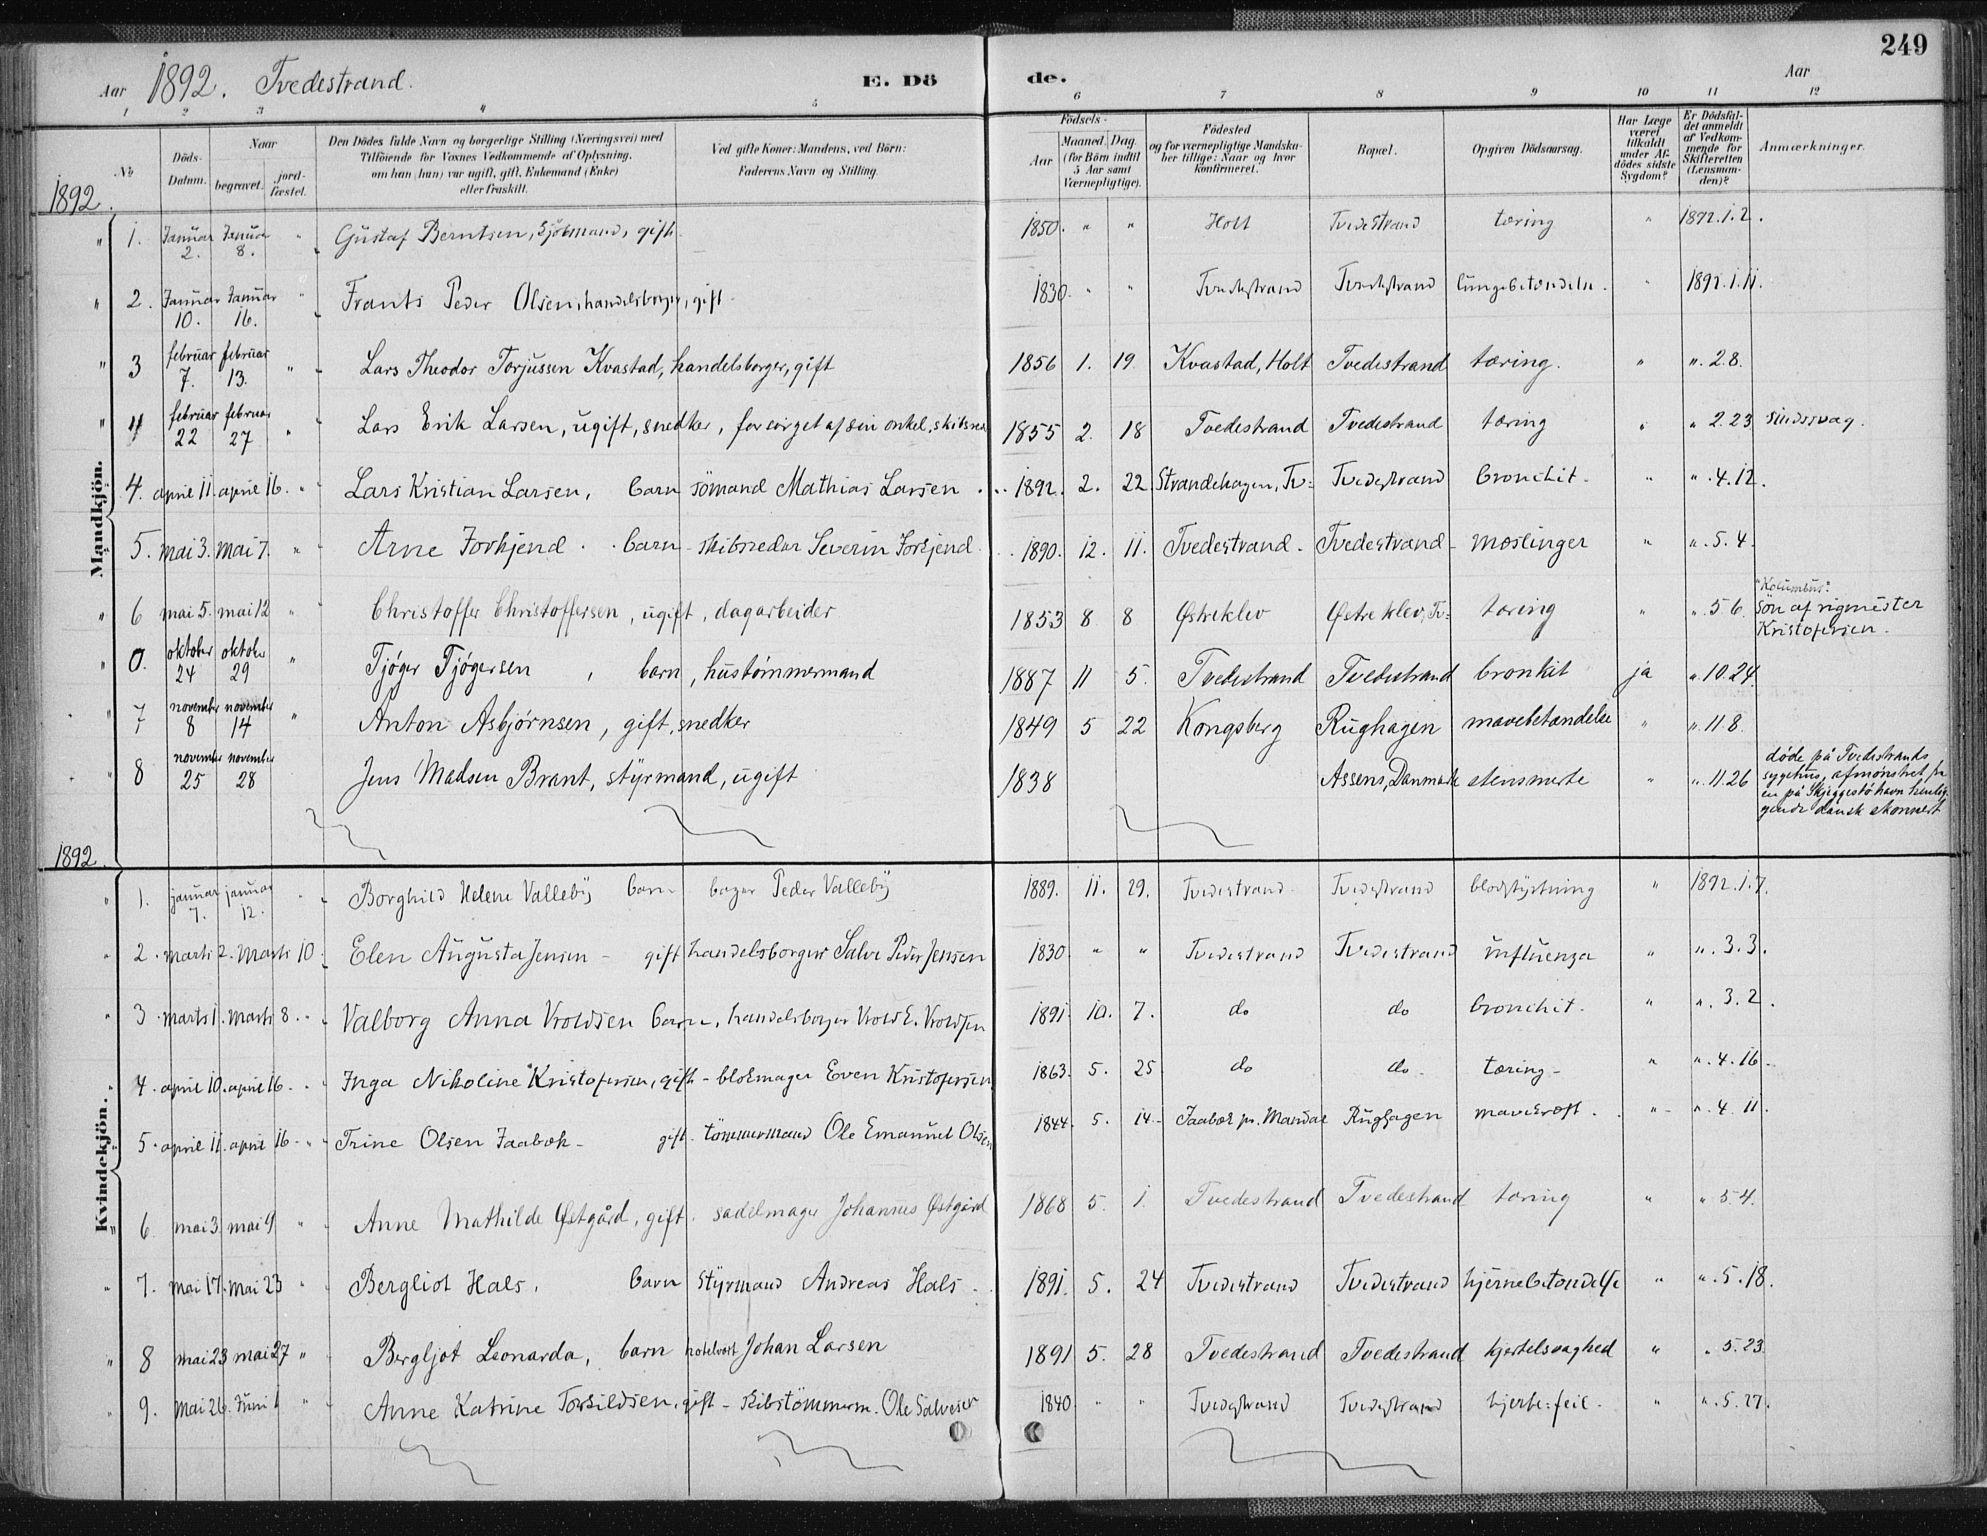 249
Aar 1892. Tvedestrand. E. Dö de. Aar
1 2 3 4 5 6 7 8 9 10 11 12
No Döds-Datum. Naar begravet. jord-fæstet. Den Dödes fulde Navn og borgerlige Stilling (Næringsvei) med Tilföiende for Voxnes Vedkommende af Oplysning, om han (hun) var ugift, gift, Enkemand (Enke) eller fraskilt. Ved gifte Koner: Mandens, ved Börn: Faderens Navn og Stilling. Födsels- Aar Maaned. Dag. (for Börn indtil 5 Aar samt Værnepligtige). Födested og for værnepligtige Mandskaber tillige: Naar og hvor konfirmeret. Bopæl. Opgiven Dödsaarsag. Har Læge været tilkaldt under Afdödes sidste Sygdom? Er Dödsfaldet anmeldt af Vedkommende for Skifteretten (Lensmanden)? Anmærkninger.
1892.
Mandkjön.
" 1. Januar 2. Januar 8. " Gustaf Berntsen, Sjömand, gift. 1850. " " Holt Tvedestrand tæring " 1892.1.2.
" 2. Januar 10. Januar 16. " Frants Peder Olsen, handelsborger, gift. 1830. " " Tvedestrand Tvedestrand lungebetændelse. " 1892.1.11.
" 3 februar 7. februar 13. " Lars Theodor Torjussen Kvastad, handelsborger, gift 1856 1. 19. Kvastad, Holt Tvedestrand tæring. " ". 2.8.
" 4 februar 22 februar 27 " Lars Erik Larsen, ugift, snedker, forsørget af sin onkel, 1855 2. 18 Tvedestrand Tvedestrand tæring " " 2.23 sindssvag.
4. april 11. april 16. " Lars Kristian Larsen, barn sömand Mathias Larsen. 1892. 2. 22. Strandehagen, Tv: Tvedestrand bronchit. " ". 4.12.
5. mai 3. mai 7. " Arne Forkjend. barn - skibsreder Severin Forkjend. 1890. 12. 11. Tvedestrand. Tvedestrand - mæslinger " ". 5.4.
" 6 mai 5. mai 12 " Christoffer Christoffersen, ugift, dagarbeider 1853 8 8 Østreklev Østreklev, Tv: tæring " ". 5 6. "Kolumbus". søn af rigmester Kristofersen.
" 0. oktober 24 oktober 29 " Tjøger Tjøgersen, barn, hustømmermand 1887 11 5. Tvedestrand Tvedestrand bronkit ja ". 10.24.
" 7 november 8 november 14 " Anton Asbjørnsen, gift, snedker 1849 5 22 Kongsberg Rughagen mavebetændelse " ". 11 8.
" 8 november 25 november 28 Jens Madsen Brant, styrmand, ugift 1838 Assens, Danmark stensmerte " ". 11.26 døde på Tvedestrands sygehus, afmønstret fra en på Skjeggestø havn henliggende dansk skonnert
1892.
Kvindekjön.
" 1. januar 7. januar 12. " Borghild Helene Valleby barn bager Peder Valleby 1889. 11. 29. Tvedestrand. Tvedestrand blodstyrtning " 1892.1.7.
" 2. marts 2. Marts 10 Elen Augusta Jensen - gift handelsborger Salve Peder Jensen 1830 " " Tvedestrand Tvedestrand influenza " ". 3.3.
" 3 marts 1. Marts 8. " Valborg Anna Vroldsen barn, handelsborger Vrold E. Vroldsen 1891. 10. 7. do do bronchit. " ". 3.2.
" 4. april 10. april 16. " Inga Nikoline Kristofersen, gift - blokmager Even Kristofersen 1863. 5. 25 do do. tæring - " ". 4.16.
" 5. april 11. april 16. " Trine Olsen Faabæk - gift. tömmermand Ole Emanuel Olsen 1844. 5. 14. Faabæk pr. Mandal Rughagen mavekræft. " ". 4 11.
" 6. mai 3 mai 9 " Anne Mathilde Østgård, gift. sadelmager Johannes Østgård 1868 5. 1. Tvedestrand Tvedestrand tæring " " 5 4.
" 7. mai 17. mai 23 " Bergliot Hals, barn styrmand Andreas Hals. 1891. 5. 24 Tvedestrand Tvedestrand hjernebetændelse " ". 5.18.
" 8 mai 23 mai 27 " Bergljot Leonarda, barn hotelvært Johan Larsen 1891 5. 28 Tvedestrand Tvedestrand kjertelsvaghed " ". 5.23.
" 9. mai 26. Juni 1 " Anne Katrine Torkildsen, gift - skibstömmerm. Ole Salvesen 1840. " " Tvedestrand Tvedestrand hjerte-feil. " ". 5.27.